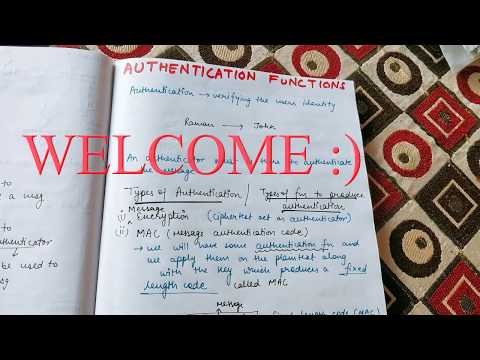 AUTHENTICATION FUNCTIONS
Authentication → verifying the users identity
Raman → John
WELCOME :)
An authenticator must be there to authenticate
the message
Types of Authentication / Types of fn to produce
authentication
Message
(i) Encryption (ciphertext act as authenticator)
(ii) MAC (message authentication code)
→ we will have some authentication fn and
we apply them on the plaintext along
with the key which produces a fixed
length code called MAC
message
(MAC)
to
a msg
to
authenticator
be used to
sg